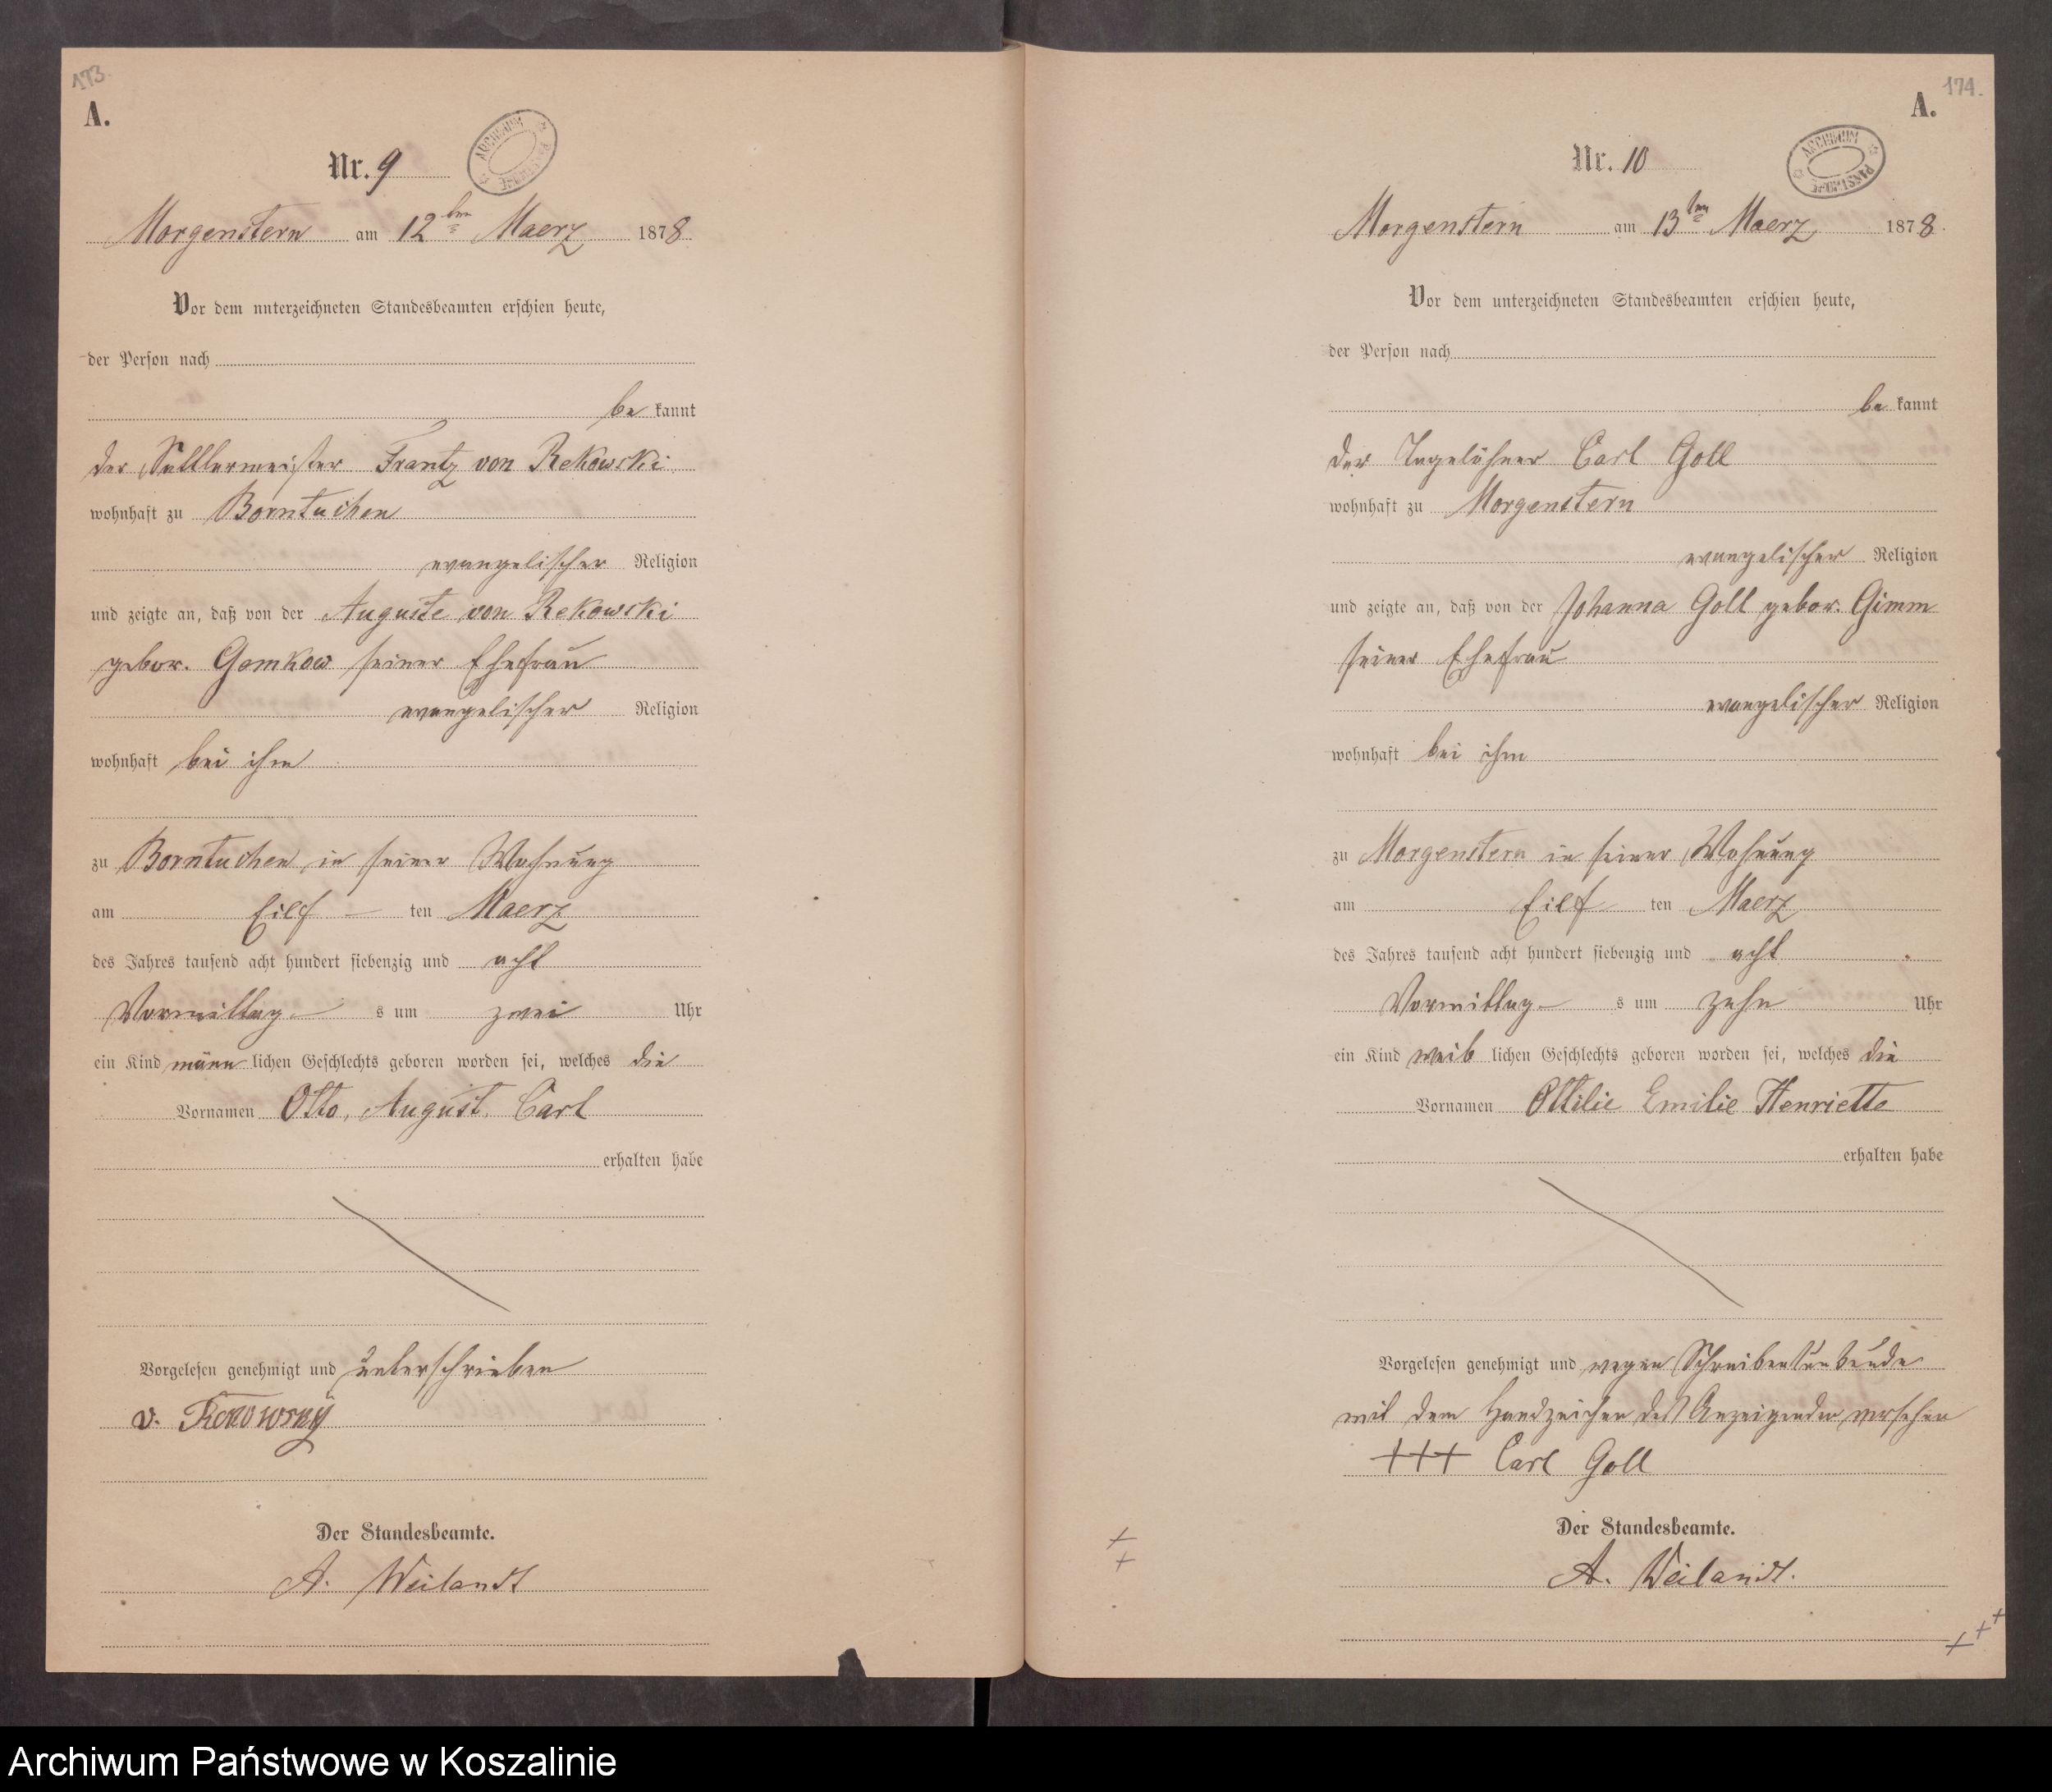 173.
A.
ARCHIWUM PAŃSTWOWE
Nr. 9
Morgenstern am 12ten Maerz 1878.
Vor dem unterzeichneten Standesbeamten erschien heute,
der Person nach
be kannt
der Sattlermeister Frantz von Rekowski
wohnhaft zu Borntuchen
evangelischer Religion
und zeigte an, daß von der Auguste von Rekowski
gebor. Gomkow seiner Ehefrau
evangelischer Religion
wohnhaft bei ihm
zu Borntuchen in seiner Wohnung
am Eilf – ten Maerz
des Jahres tausend acht hundert siebenzig und acht
Vormittag – s um zwei Uhr
ein Kind männ lichen Geschlechts geboren worden sei, welches die
Vornamen Otto, August, Carl
erhalten habe
Vorgelesen genehmigt und unterschrieben
v. Rekowsky
Der Standesbeamte.
A. Weilandt
174.
A.
ARCHIWUM PAŃSTWOWE
Nr. 10
Morgenstern am 13ten Maerz 1878.
Vor dem unterzeichneten Standesbeamten erschien heute,
der Person nach
be kannt
der Tagelöhner Carl Goll
wohnhaft zu Morgenstern
evangelischer Religion
und zeigte an, daß von der Johanna Goll gebor. Gimm
seiner Ehefrau
evangelischer Religion
wohnhaft bei ihm
zu Morgenstern in seiner Wohnung
am Eilf ten Maerz
des Jahres tausend acht hundert siebenzig und acht
Vormittag – s um zehn Uhr
ein Kind weib lichen Geschlechts geboren worden sei, welches die
Vornamen Ottilie Emilie Henriette
erhalten habe
Vorgelesen genehmigt und wegen Schreibensunkunde
mit dem Handzeichen des Anzeigenden versehen
+++ Carl Goll
Der Standesbeamte.
A. Weilandt.
Archiwum Państwowe w Koszalinie